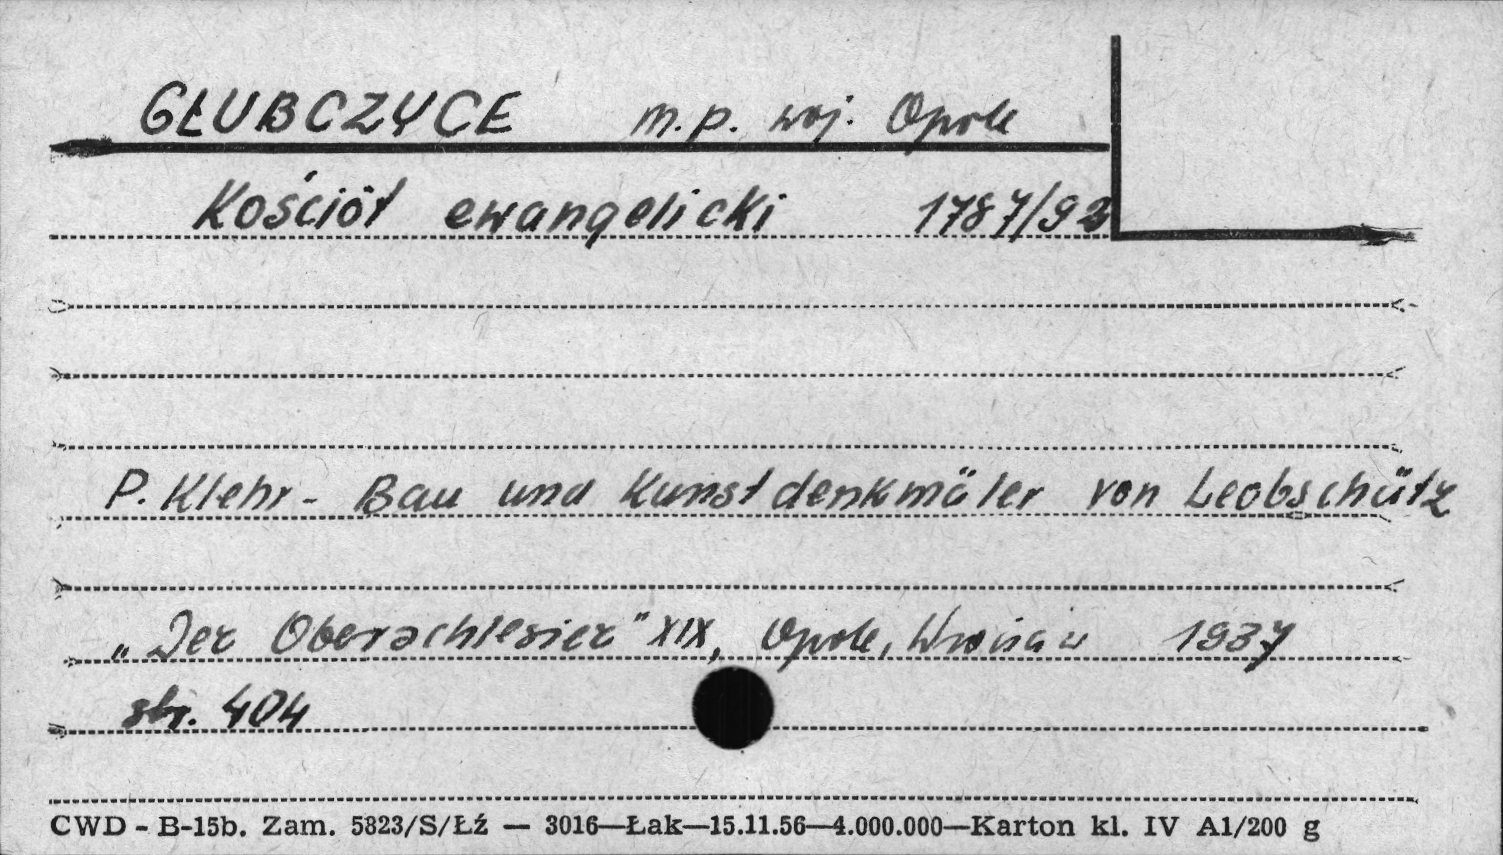 GŁUBCZYCE m.p. woj. Opole
Kościół ewangelicki 1787/92
P. Klehr - Bau und Kunstdenkmäler von Leobschütz
„Der Oberschlesier" XIX, Opole, 1937
str. 404
CWD - B-15b. Zam. 5823/S/Łź — 3016—Łak—15.11.56—4.000.000—Karton kl. IV A1/200 g